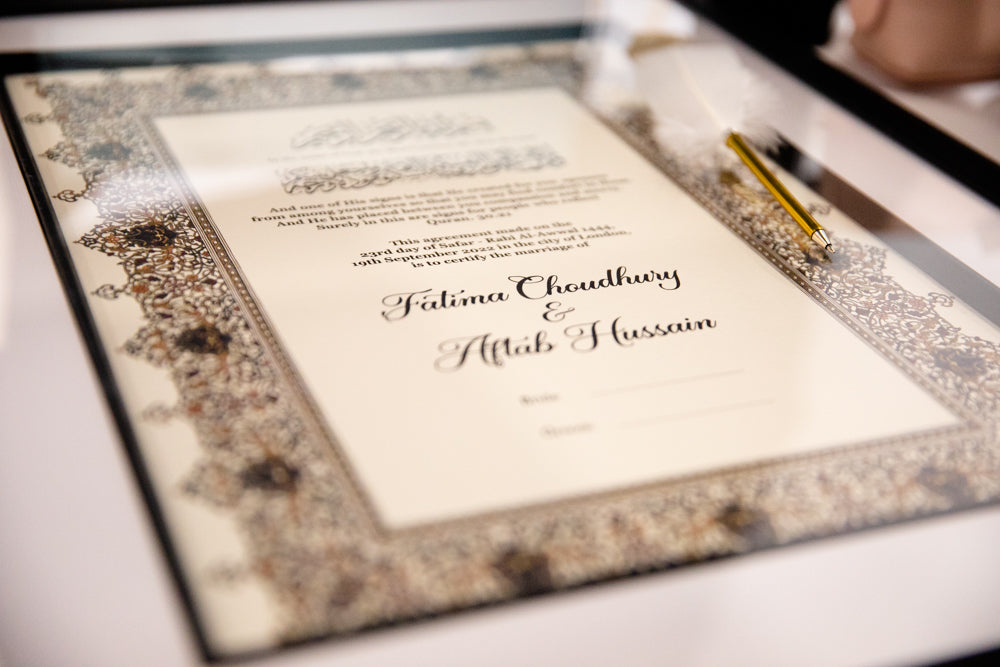 And one of His signs is that He created
from among yourselves so that you may
And He has placed between you
Surely in this are signs for people who reflect
Quran: 30:21
This agreement made on the
23rd day of Safar - Rabi Al-Awwal 1444,
19th September 2022 in the city of London,
is to certify the marriage of
Fatima Choudhury
&
Aftab Hussain
Bride
Groom